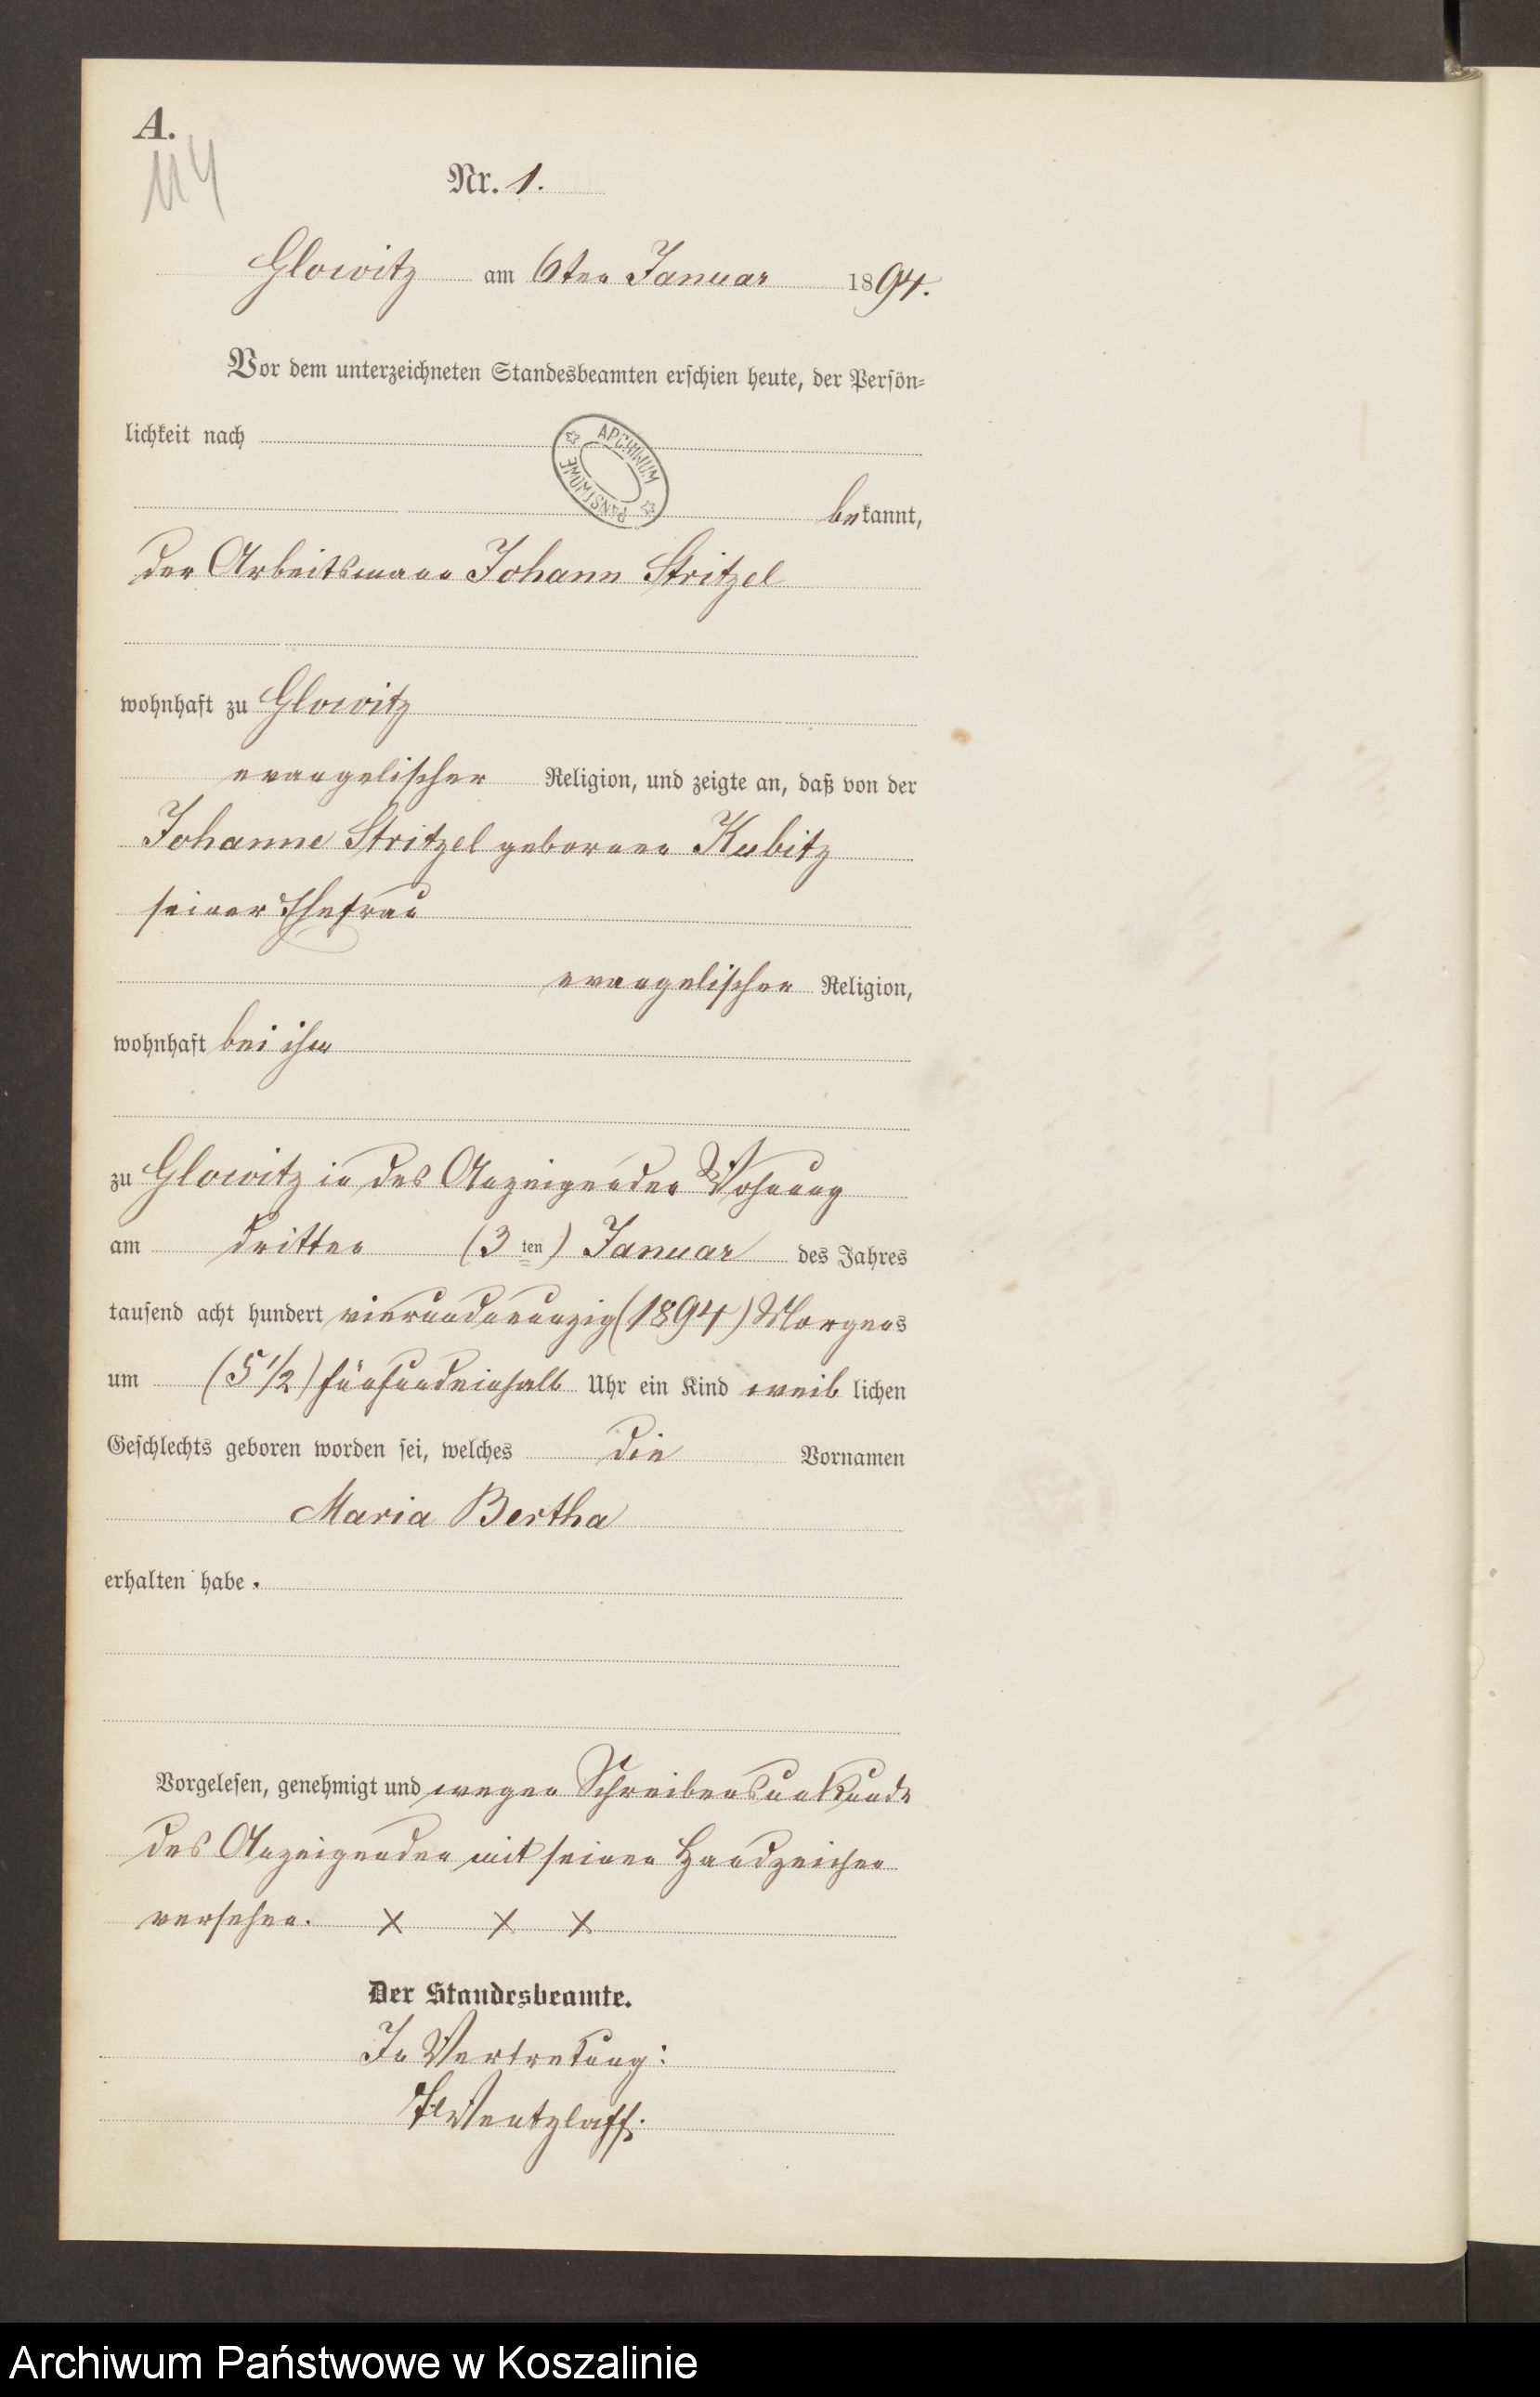 A.
114
Nr. 1.
Glowitz am 6ten Januar 1894.
Vor dem unterzeichneten Standesbeamten erschien heute, der Persön-
lichkeit nach
ARCHIWUM PAŃSTWOWE
bekannt,
der Arbeitsmann Johann Stritzel
wohnhaft zu Glowitz
evangelischer Religion, und zeigte an, daß von der
Johanne Stritzel gebornen Kubitz
seiner Ehefrau
evangelischer Religion,
wohnhaft bei ihm
zu Glowitz in des Anzeigenden Wohnung
am dritten (3 ten) Januar des Jahres
tausend acht hundert vierundneunzig (1894) Morgens
um (5 1/2) fünfundeinhalb Uhr ein Kind weib lichen
Geschlechts geboren worden sei, welches die Vornamen
Maria Bertha
erhalten habe.
Vorgelesen, genehmigt und wegen Schreibensunkunde
des Anzeigenden mit seinen Handzeichen
versehen. x x x
Der Standesbeamte.
In Vertretung:
Wentzlaff.
Archiwum Państwowe w Koszalinie